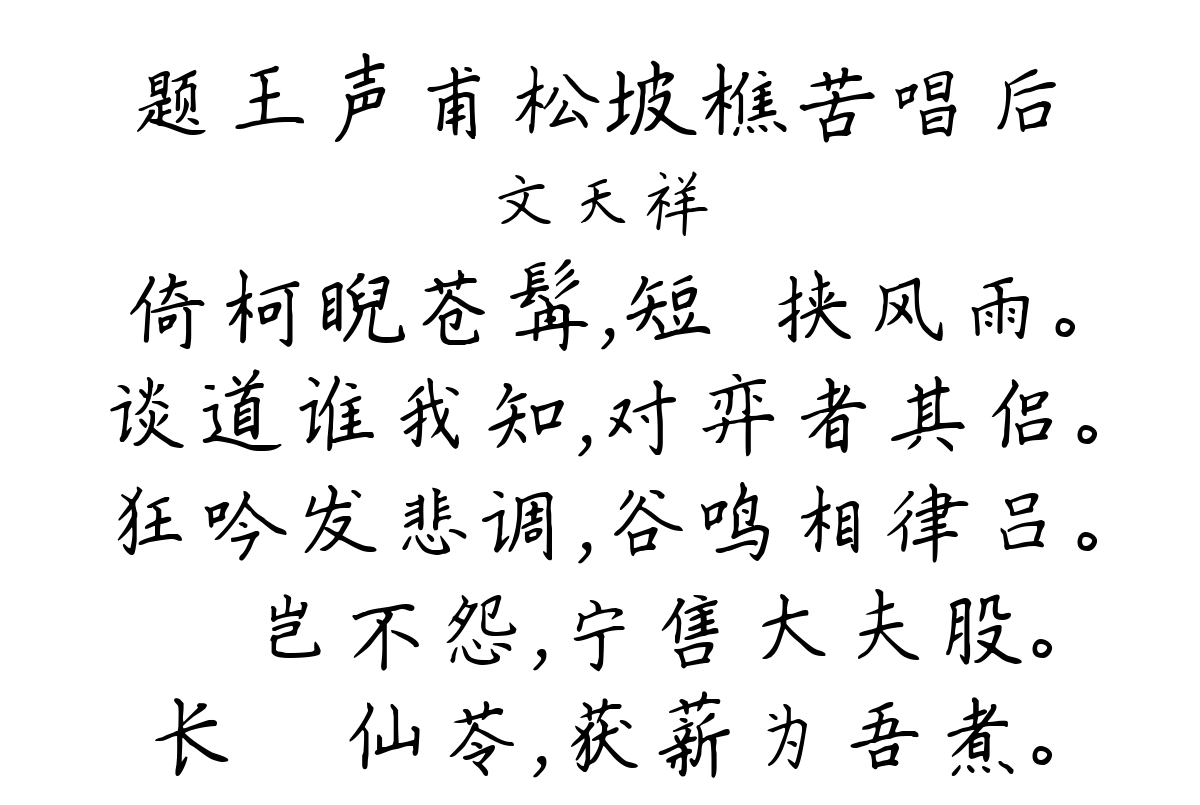 题王声甫松坡樵苦唱后
文天祥
倚柯睨苍髯,短 挟风雨。
谈道谁我知,对弈者其侣。
狂吟发悲调,谷鸣相律吕。
岂不怨,宁售大夫股。
长 仙苓,获薪为吾煮。